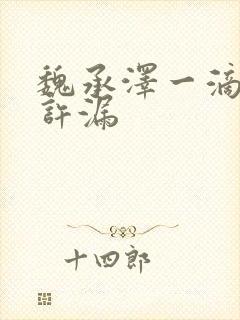 魏承澤一滴
許漏
十四郎